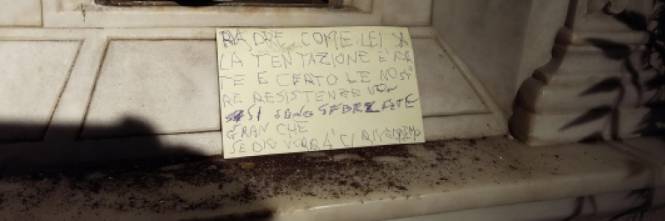 PADRE COME LEI X
LA TENTAZIONE È FOR
TE E CERTO LE NOST
RE RESISTENZE NON
SI SONO SFORZATE
GRAN CHE
SE DIO VORRÀ CI RIVEDREMO